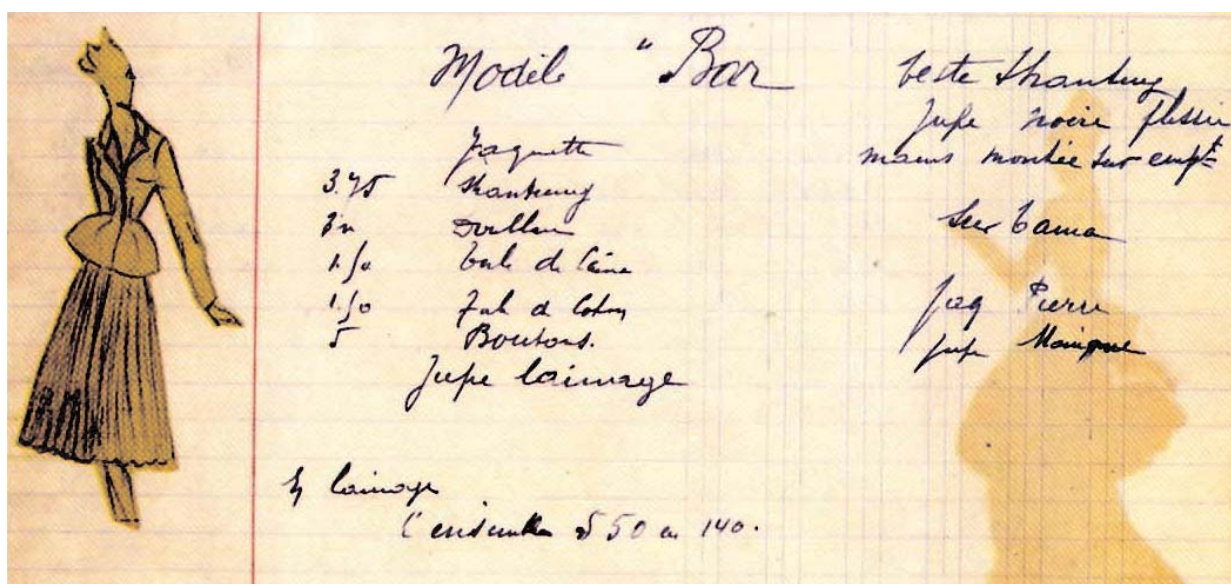 Modèle "Bar
Jaquette
3.75 Shantung
3m
1.50 toile de laine
1.50 Toile de Coton
5 Boutons.
Jupe lainage
lainage
L'ensemble 5 50 en 140.
Veste Shantung
Jupe noire plissée
mains montée sur emp^t
Sur Tania
Jaq Pierre
Jupe Monique